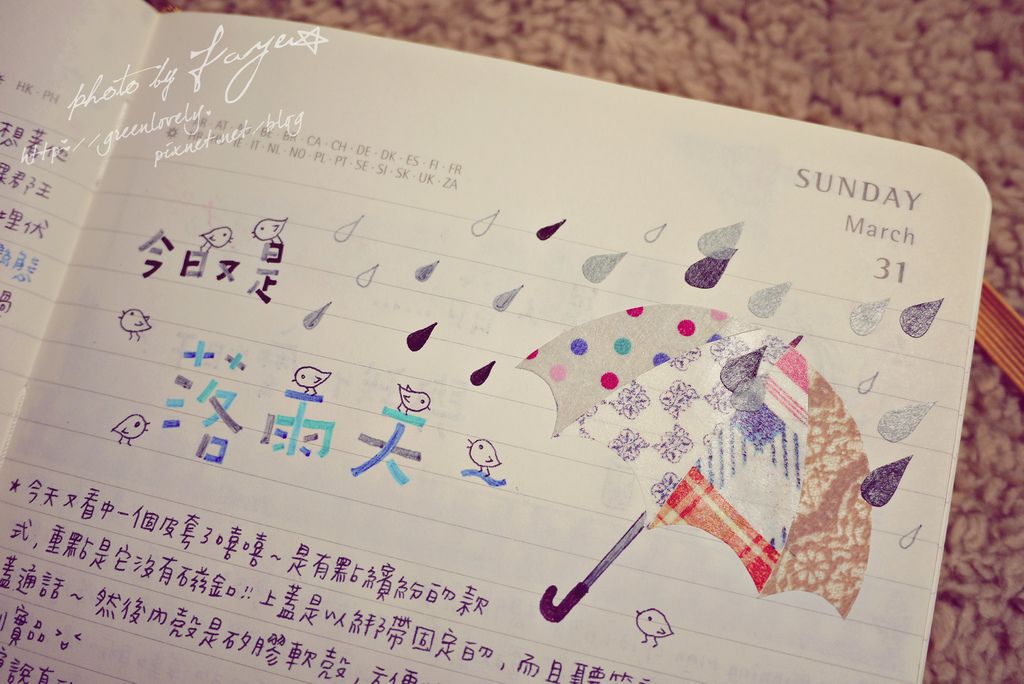 photo by Faye☆
http://greenlovely.
pixnet.net/blog
HK · PH
CA · CH · DE · DK · ES · FI · FR
IE · IT · NL · NO · PL · PT · SE · SI · SK · UK · ZA
SUNDAY
March
31
今日又是
落雨天
埋伏
★今天又看中一個皮套了嘻嘻~是有點繽紛的款
式,重點是它沒有磁釦!!上蓋是以綁帶固定的,而且
蓋通話~然後內殼是矽膠軟殼,